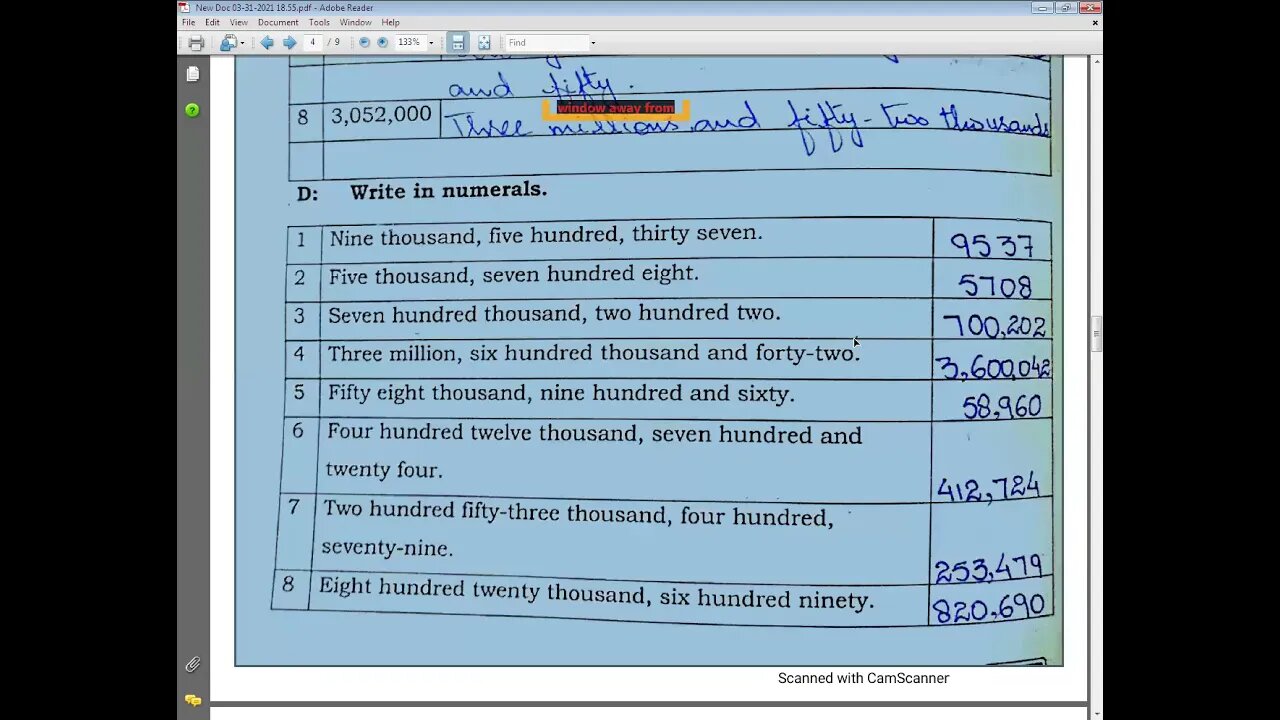 New Doc 03-31-2021 18.55.pdf - Adobe Reader
File Edit View Document Tools Window Help
4 / 9 133% Find
and fifty.
8 3,052,000 Three millions and fifty-two thousands
window away from
D: Write in numerals.
1 Nine thousand, five hundred, thirty seven. 9537
2 Five thousand, seven hundred eight. 5708
3 Seven hundred thousand, two hundred two. 700,202
4 Three million, six hundred thousand and forty-two. 3,600,042
5 Fifty eight thousand, nine hundred and sixty. 58,960
6 Four hundred twelve thousand, seven hundred and
twenty four. 412,724
7 Two hundred fifty-three thousand, four hundred,
seventy-nine. 253,479
8 Eight hundred twenty thousand, six hundred ninety. 820,690
Scanned with CamScanner